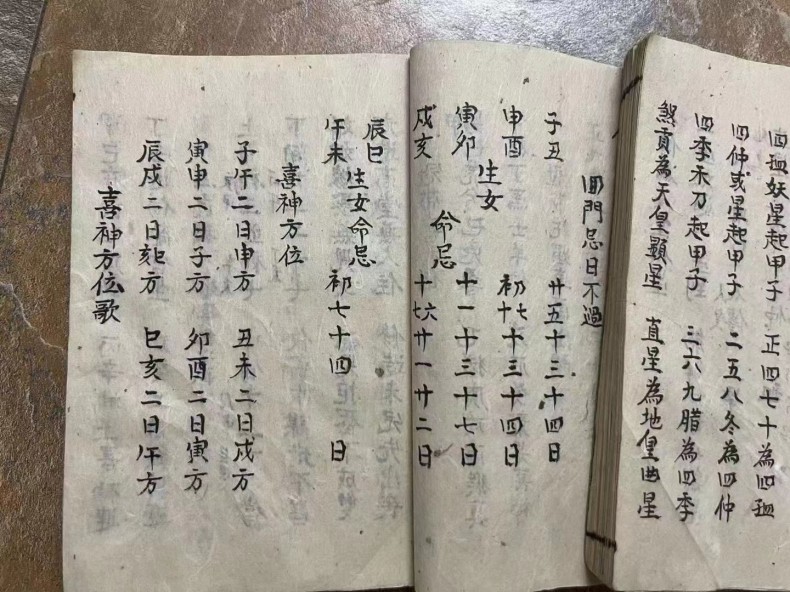 四孟妖星起甲子 正四七十為四孟
四仲或星起甲子 二五八冬為四仲
四季禾刀起甲子 三六九腊為四季
煞貢為天皇顕星 直星為地皇曲星
回門忌日不過
子丑 廿五十三十四日
申酉 初七十十三十四日
生女
寅卯 十一十三十七日
命忌
戌亥 十六十七廿一廿二日
辰巳
生女命忌
午未 初七十四日
喜神方位
子午二日申方 丑未二日戌方
寅申二日子方 卯酉二日寅方
辰戌二日方 巳亥二日午方
喜神方位歌